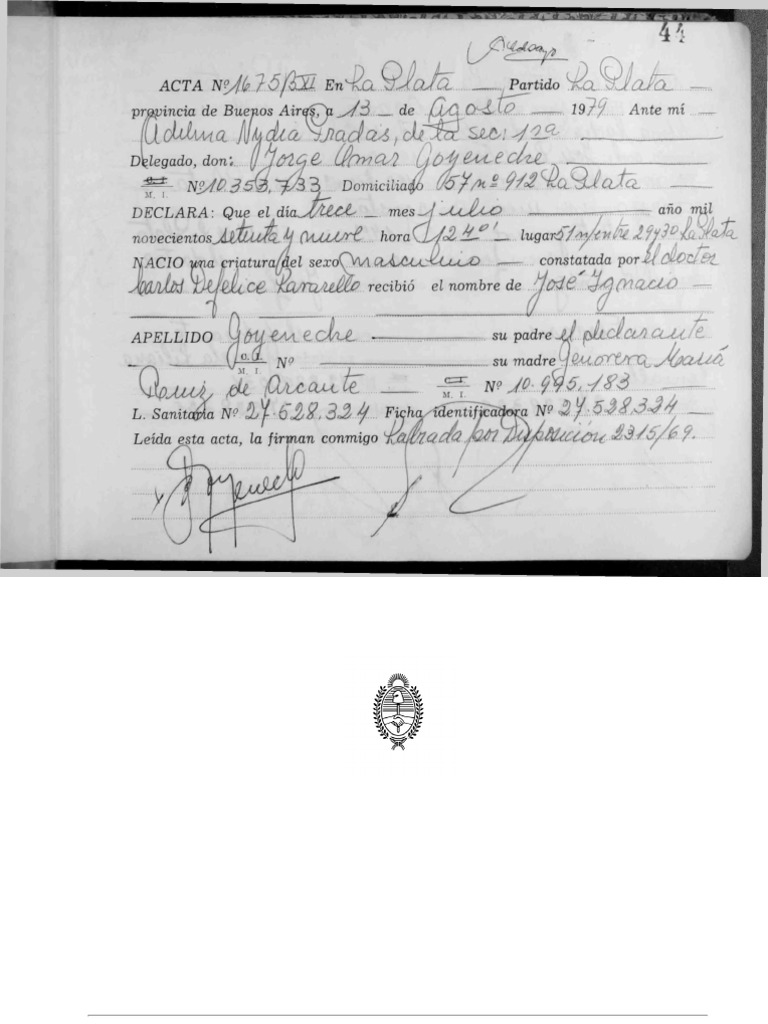 44
ACTA Nº 1675 B XI En La Plata Partido La Plata
provincia de Buenos Aires, a 13 de Agosto 1979 Ante mí
Adelma Nydia Pradas, de la sec: 1ª
Delegado, don: Jorge Omar Goyeneche
C. I. M. I. Nº 10.353.733 Domiciliado 57 nº 912 La Plata
DECLARA: Que el día trece mes julio año mil
novecientos setenta y nueve hora 12 40' lugar 51 n/ entre 29 y 30 La Plata
NACIO una criatura del sexo masculino constatada por el doctor
Carlos Defelice recibió el nombre de José Ignacio
APELLIDO Goyeneche su padre el declarante
C. I. M. I. Nº su madre Genoveva María
Ruiz de Arcaute C. I. M. I. Nº 10.995.183
L. Sanitaria Nº 27.528.324 Ficha identificadora Nº 27.528.324
Leída esta acta, la firman conmigo Labrada por Disposición 2315/69.
Goyeneche